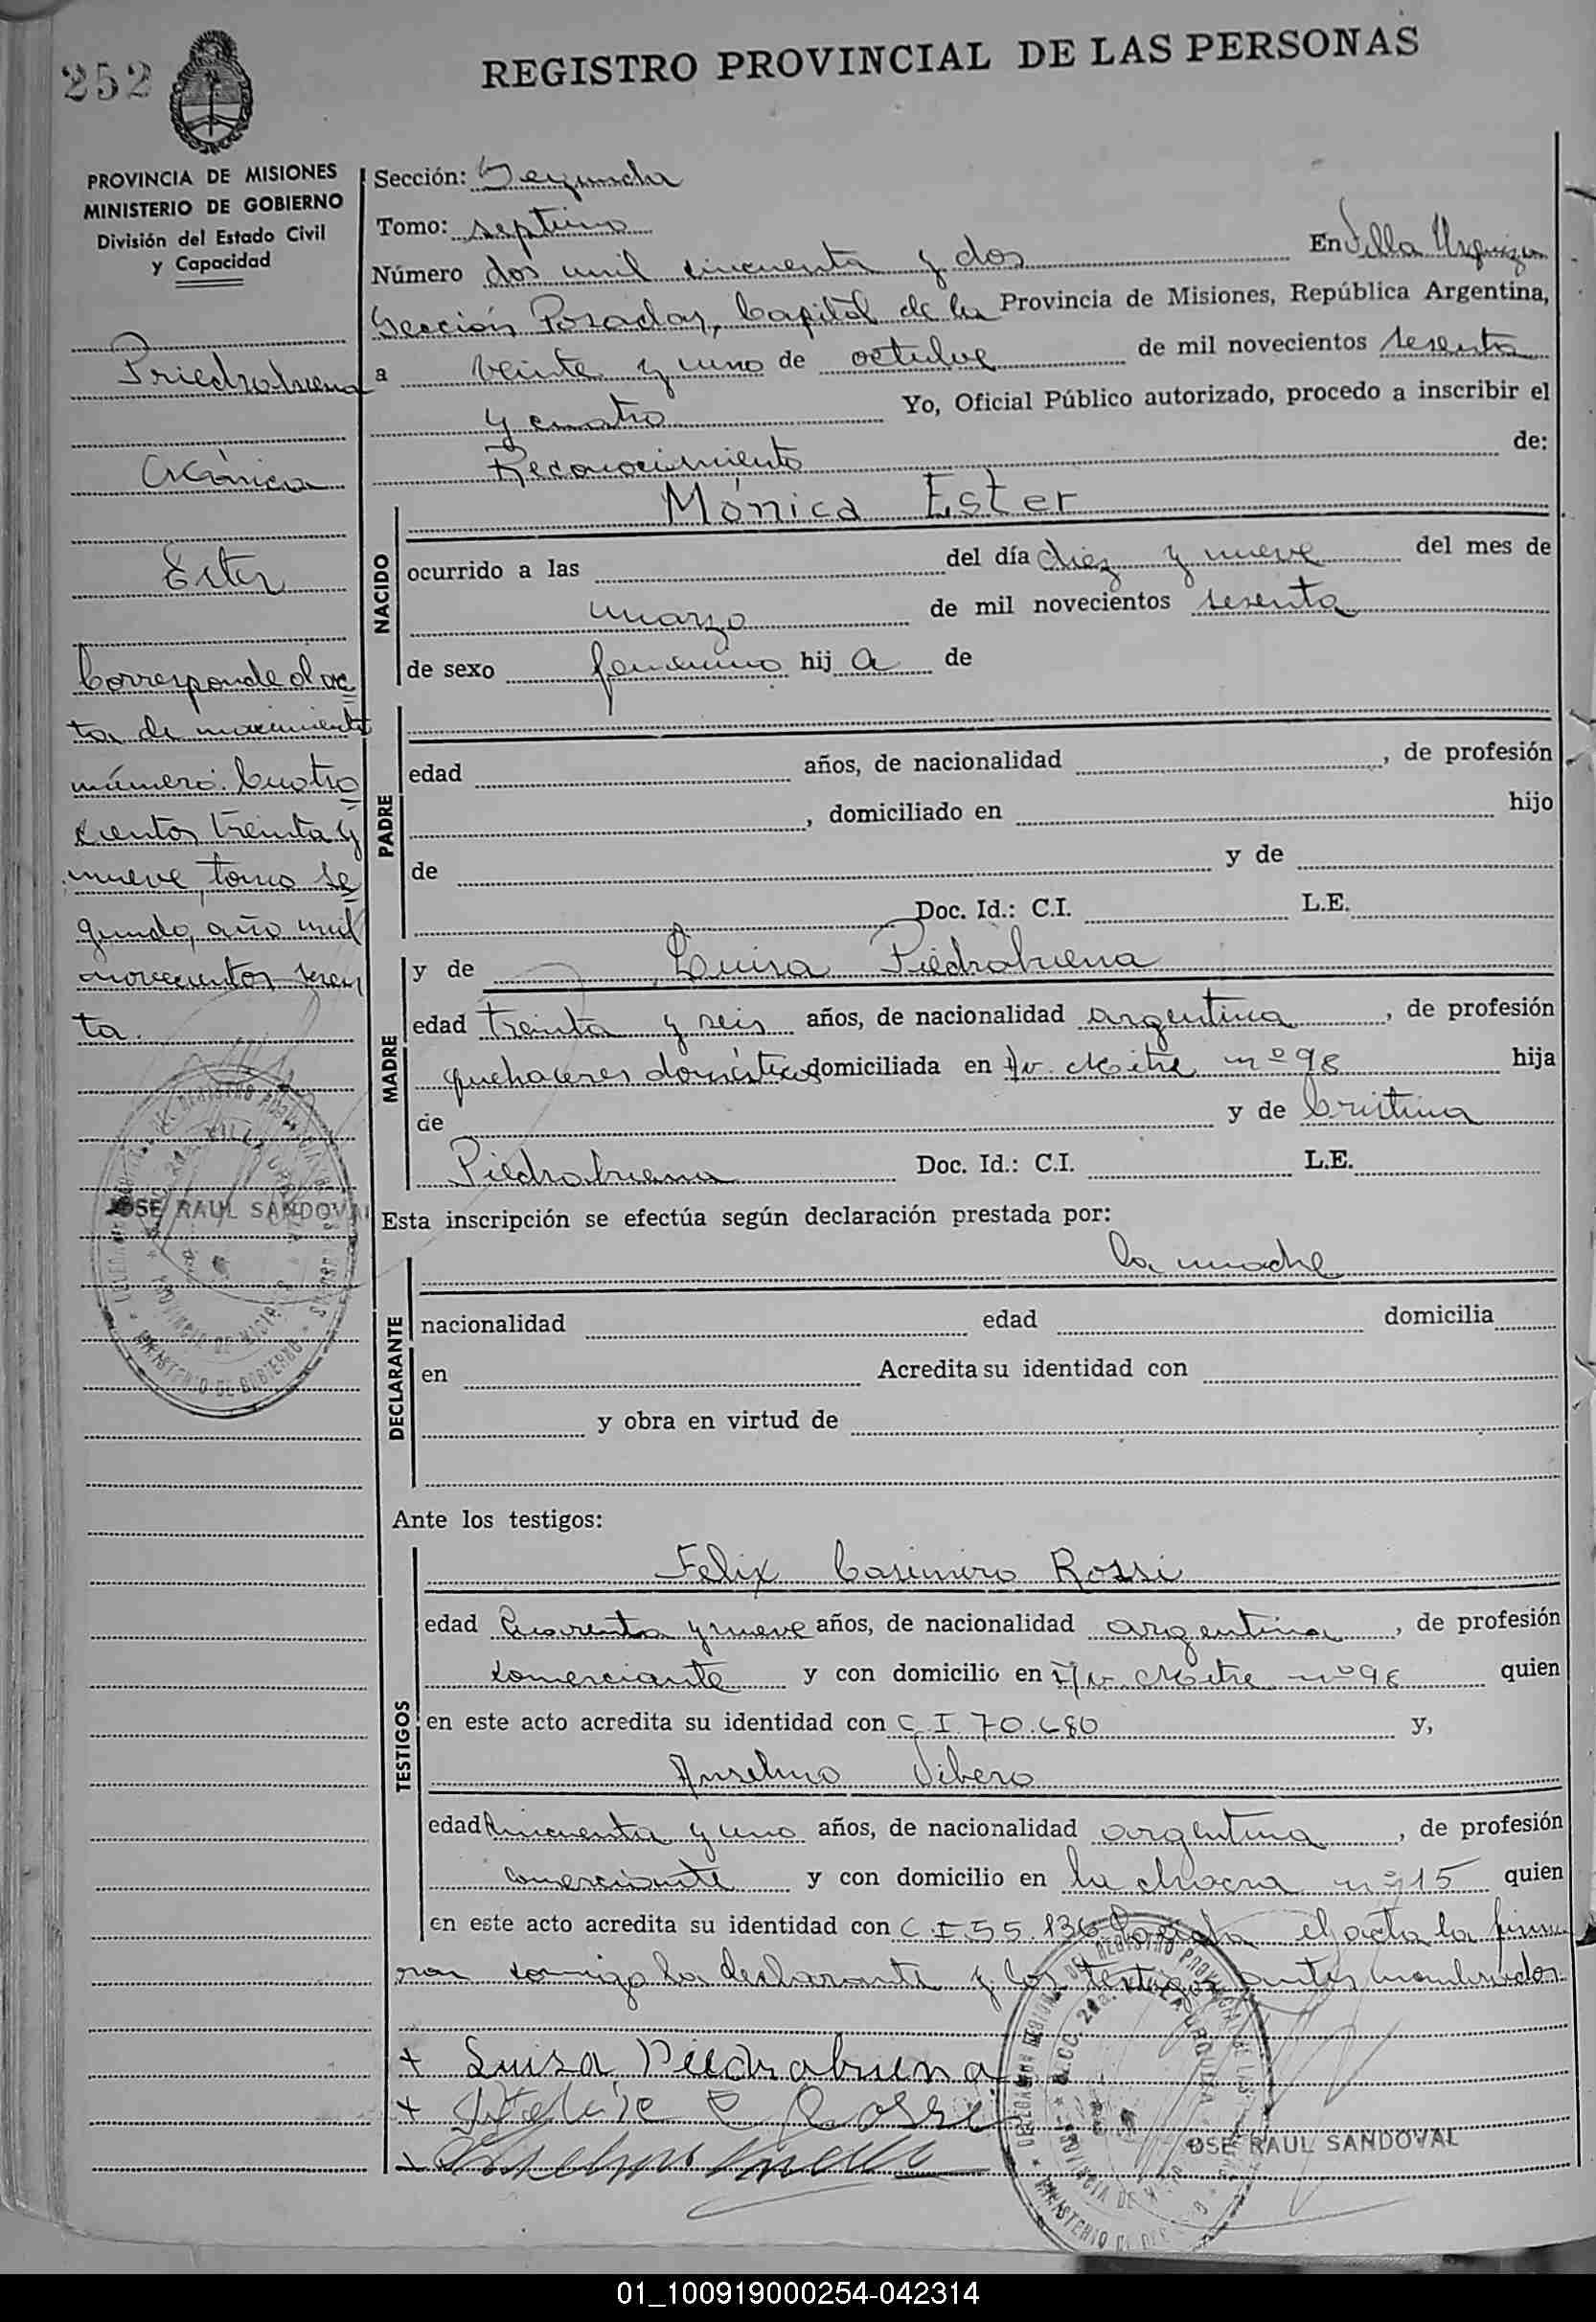 252
REGISTRO PROVINCIAL DE LAS PERSONAS
PROVINCIA DE MISIONES
MINISTERIO DE GOBIERNO
División del Estado Civil
y Capacidad
Piedrabuena
Mónica
Ester
Corresponde al ac
ta de nacimiento
número: Cuatro
cientos treinta y
nueve, tomo se
gundo, año mil
novecientos sesen
ta.
JOSE RAUL SANDOVAL
Sección: Segunda
Tomo: septimo
Número dos mil cincuenta y dos En Villa Urquiza
Sección Posadas, Capital de la Provincia de Misiones, República Argentina,
a veinte y uno de octubre de mil novecientos sesenta
y cuatro Yo, Oficial Público autorizado, procedo a inscribir el
Reconocimiento de:
NACIDO
Mónica Ester
ocurrido a las del día diez y nueve del mes de
marzo de mil novecientos sesenta
de sexo femenino hij a de
PADRE
edad años, de nacionalidad , de profesión
, domiciliado en hijo
de y de
Doc. Id.: C.I. L.E.
MADRE
y de Luisa Piedrabuena
edad treinta y seis años, de nacionalidad argentina, de profesión
quehaceres domésticos domiciliada en Av. Mitre nº 98 hija
de y de Cristina
Piedrabuena Doc. Id.: C.I. L.E.
Esta inscripción se efectúa según declaración prestada por:
DECLARANTE
la madre
nacionalidad edad domicilia
en Acredita su identidad con
y obra en virtud de
Ante los testigos:
TESTIGOS
Felix Casimiro Rossi
edad Cuarenta y nueve años, de nacionalidad argentina, de profesión
comerciante y con domicilio en Av. Mitre nº 98 quien
en este acto acredita su identidad con C I 70.680 y,
Anselmo Vibero
edad Cincuenta y uno años, de nacionalidad argentina, de profesión
comerciante y con domicilio en la chacra nº 15 quien
en este acto acredita su identidad con C.I 55.836 Leida el acta la firma
ron conmigo la declarante y los testigos antes nombrados
+ Luisa Piedrabuena
+ Felix C Rossi
JOSE RAUL SANDOVAL
01_100919000254-042314